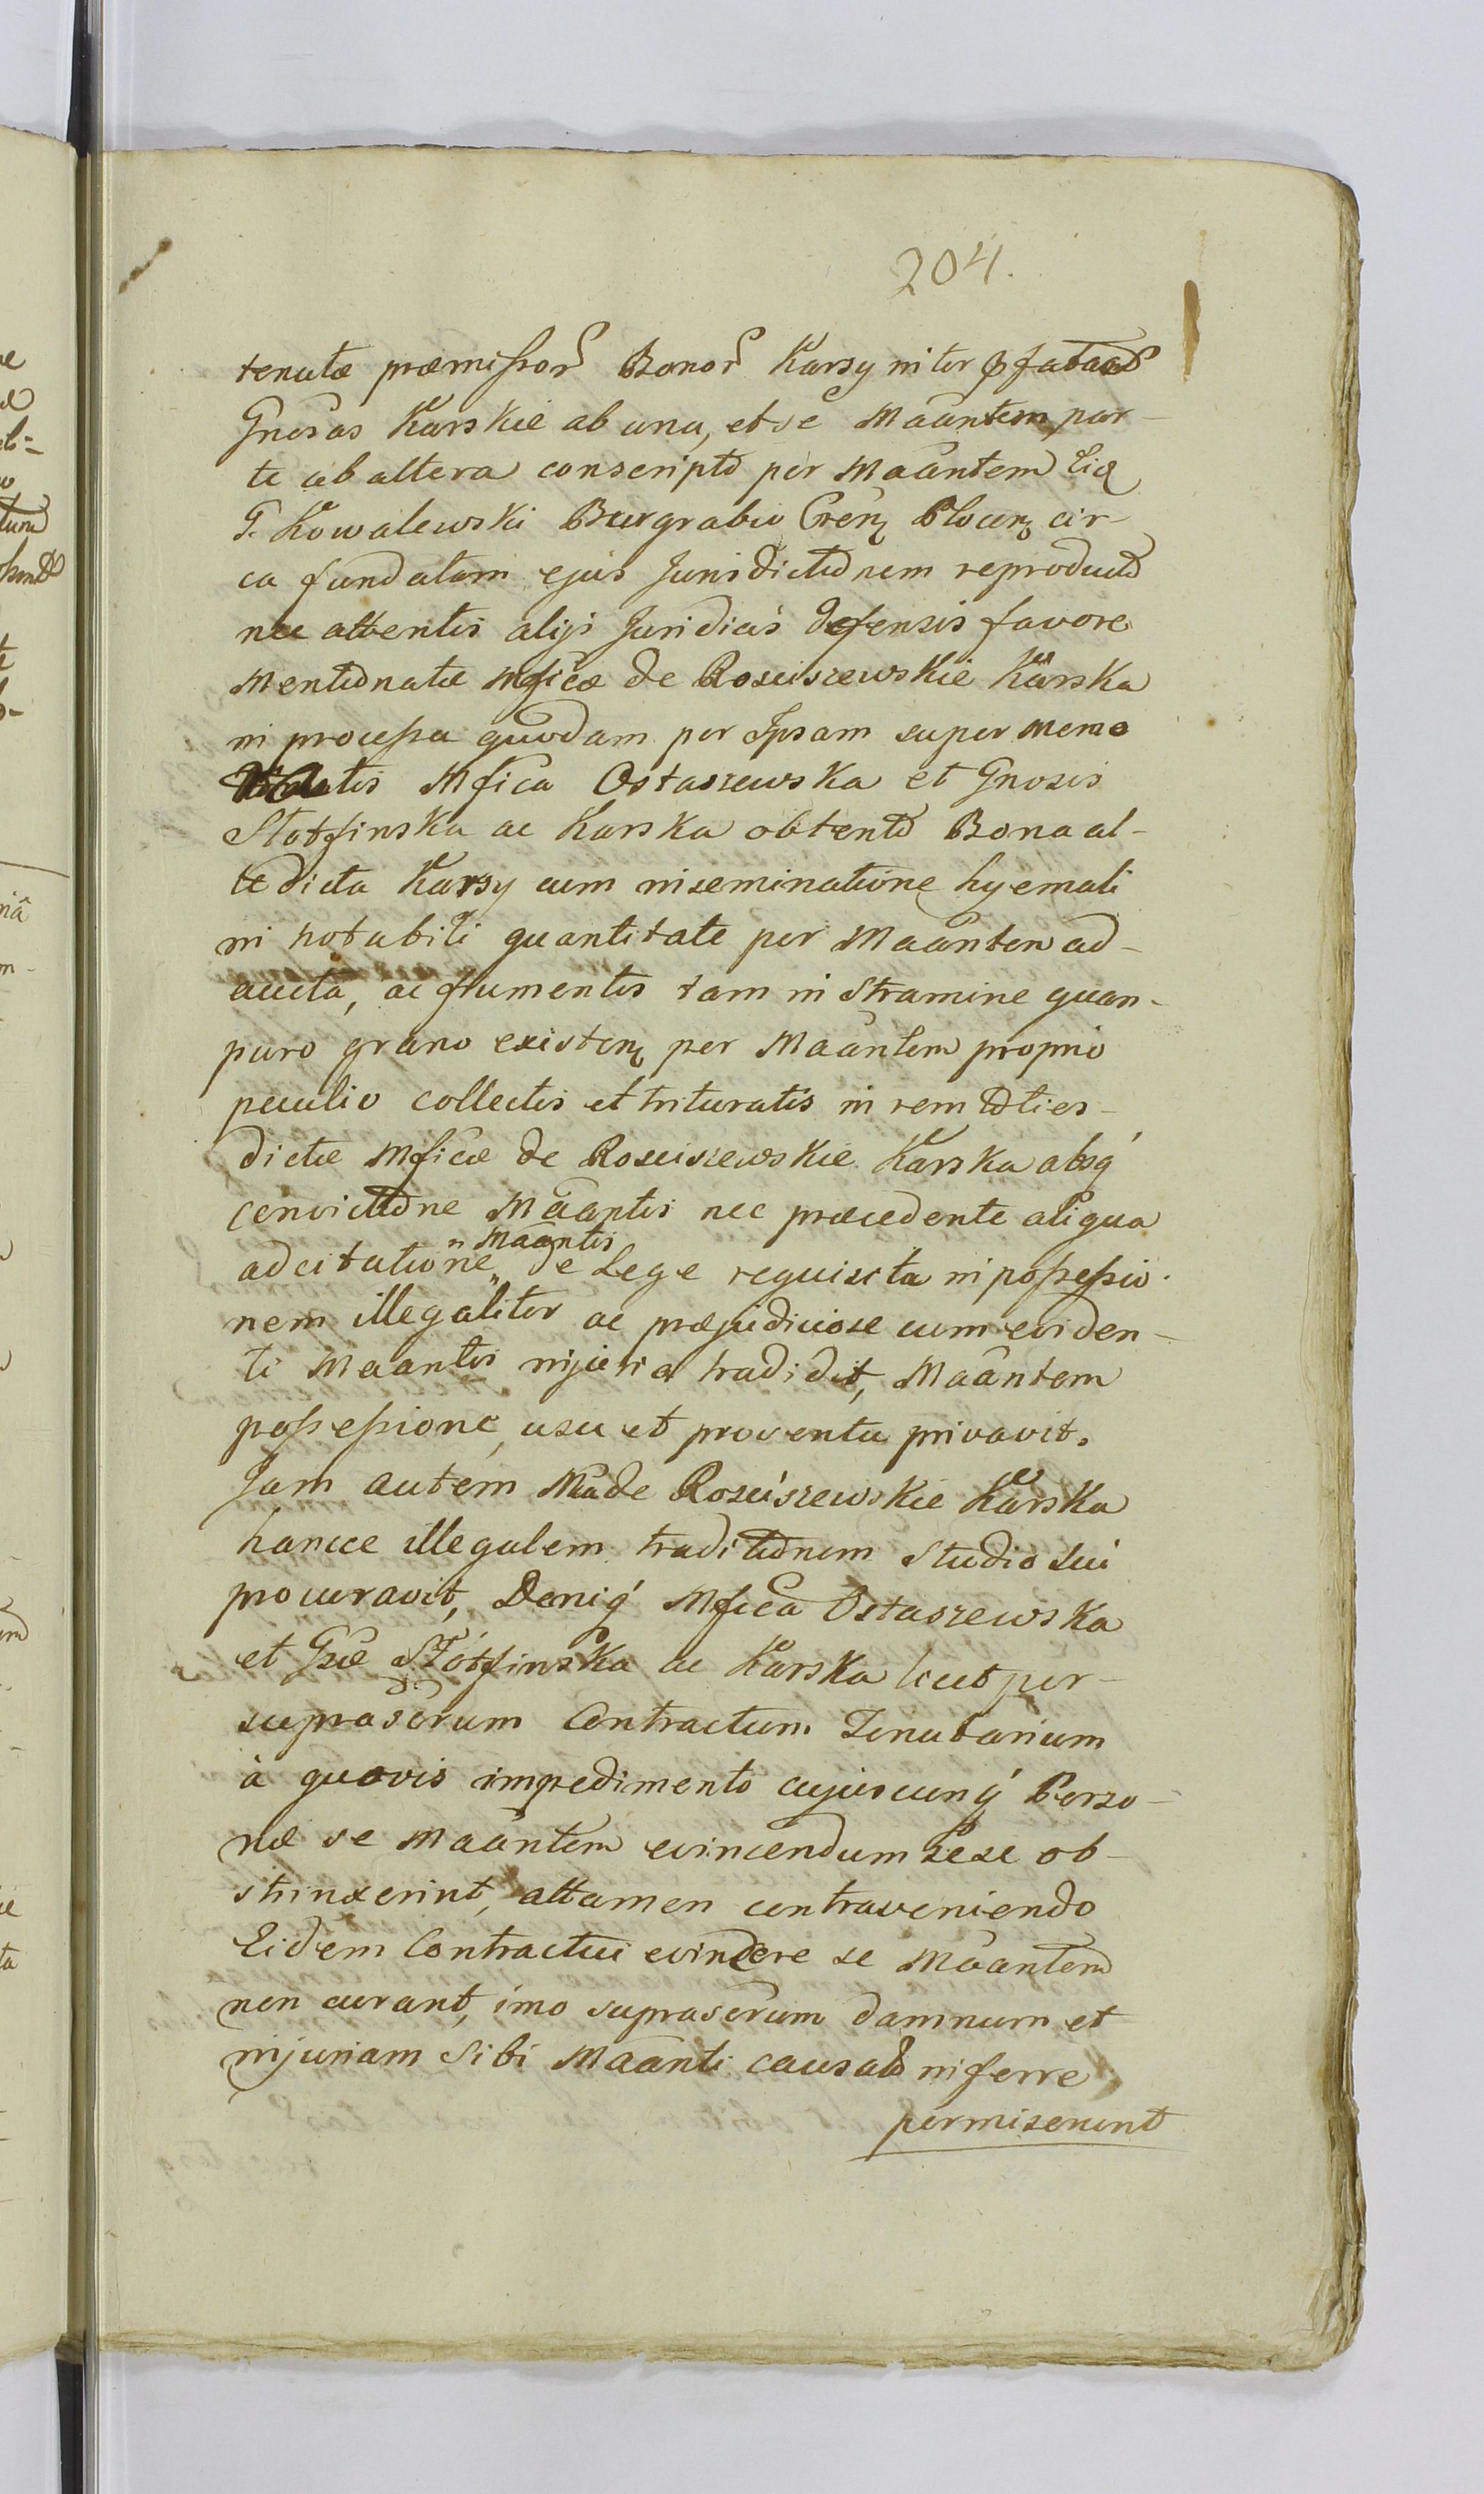 204.
tenutæ præmissor Bonor Karsy inter pfatas
Gnosas Karskie ab una, et se Maãntem par-
te ab altera conscripto per Maãntem Eid
G. Kowalewski Burgrabio Cren Plocen cir-
ca fundatam ejus Jurisdictionem reproducto
nec attentis alijs Juridicis defensis favore
mentionatæ Mficæ de Rosciszewskie Karska
in processu quodam per Ipsam super memo
ratis Mfica Ostaszewska et Gnosis
Stotfinska ac Karska obtento Bona al-
te dicta Karsy cum inseminatione hyemali
in notabili quantitate per Maãntem ad-
aucta, ac frumentis tam in stramine quam
puro grano existen per Maãntem proprio
peculio collectis et trituratis in rem toties-
dictæ Mficæ de Rosciszewskie Karska absq́
convictione Maãntis nec præcedente aliqua
adcitatione „ Maãntis „ de Lege requisita in possessio-
nem illegaliter ac præjudiciose cum eviden-
ti Maantis injuria tradidit, Maãntem
possessione, usu et proventu privavit.
Jam autem Mca de Rosciszewskie Karska
hancce illegalem traditionem studio sui
procuravit, Deniq́ Mfica Ostaszewska
et Gsæ Stotfinska ac Karska licet per-
suprascrum Contractum Tenutarium
à quovis impedimento cujuscunq́ Perso-
næ se Maãntem evincendum sese ob-
strinxerint, attamen contraveniendo
Eidem Contractui evincere se Maãntem
non curant, imo suprascrum damnum et
injuriam sibi Maãnti causato inferre
permiserunt